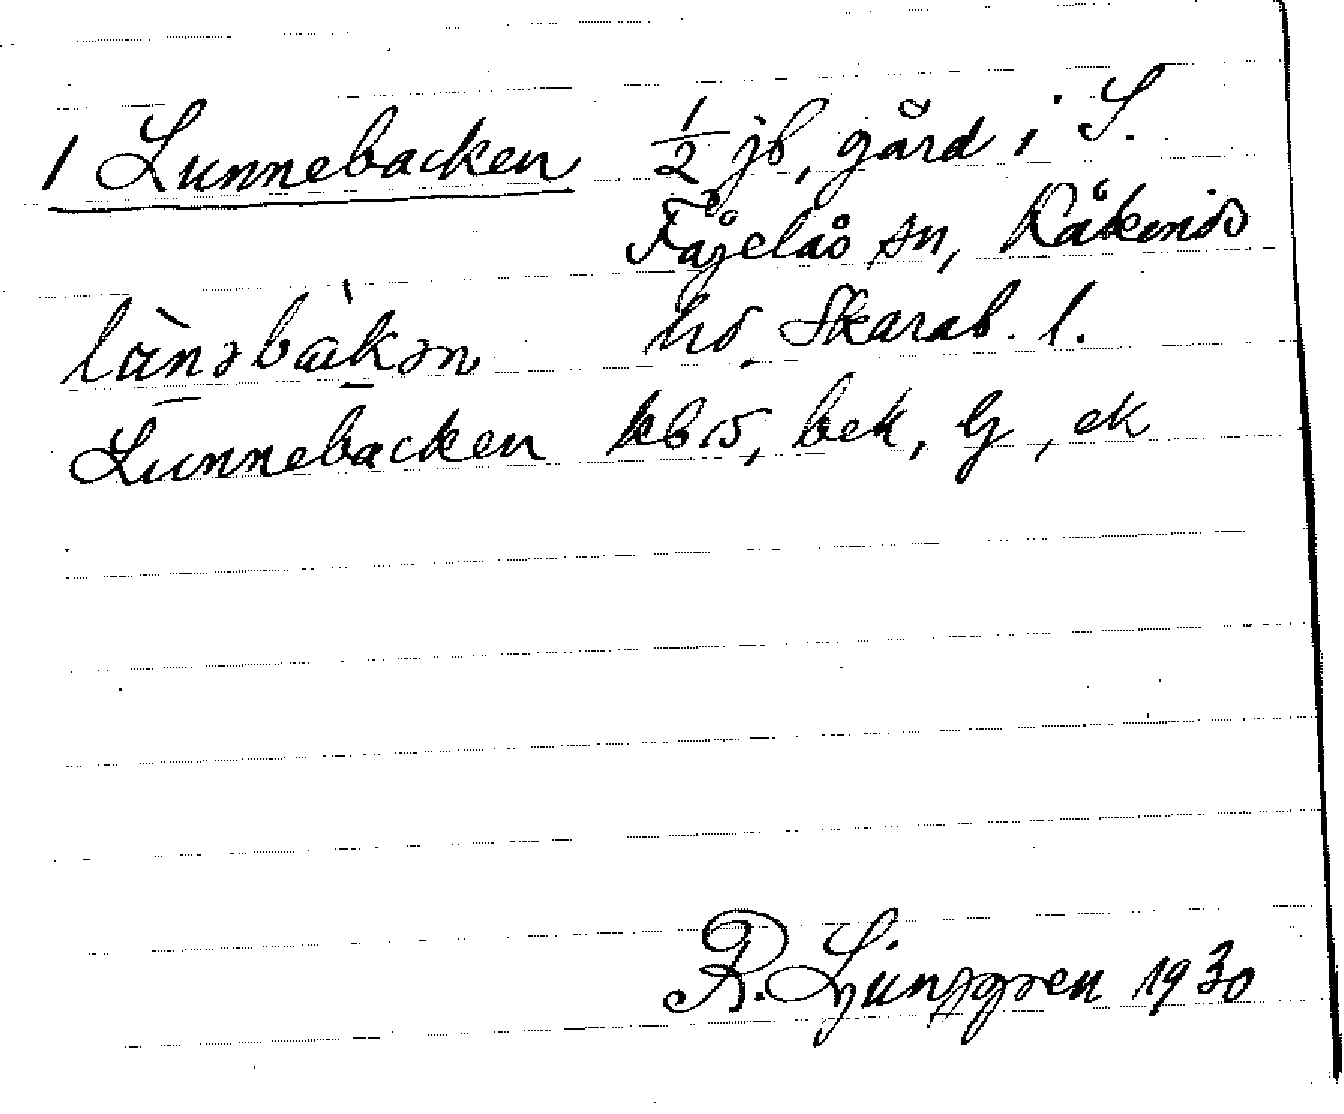 1 Lunnebacken ½ jb, gård i S.
Fågelås sn, Kåkinds
hd Skarab. l.
lùnəbàkən
Lunnebacken kb 15, bek, G, ek
R. Ljunggren 1930